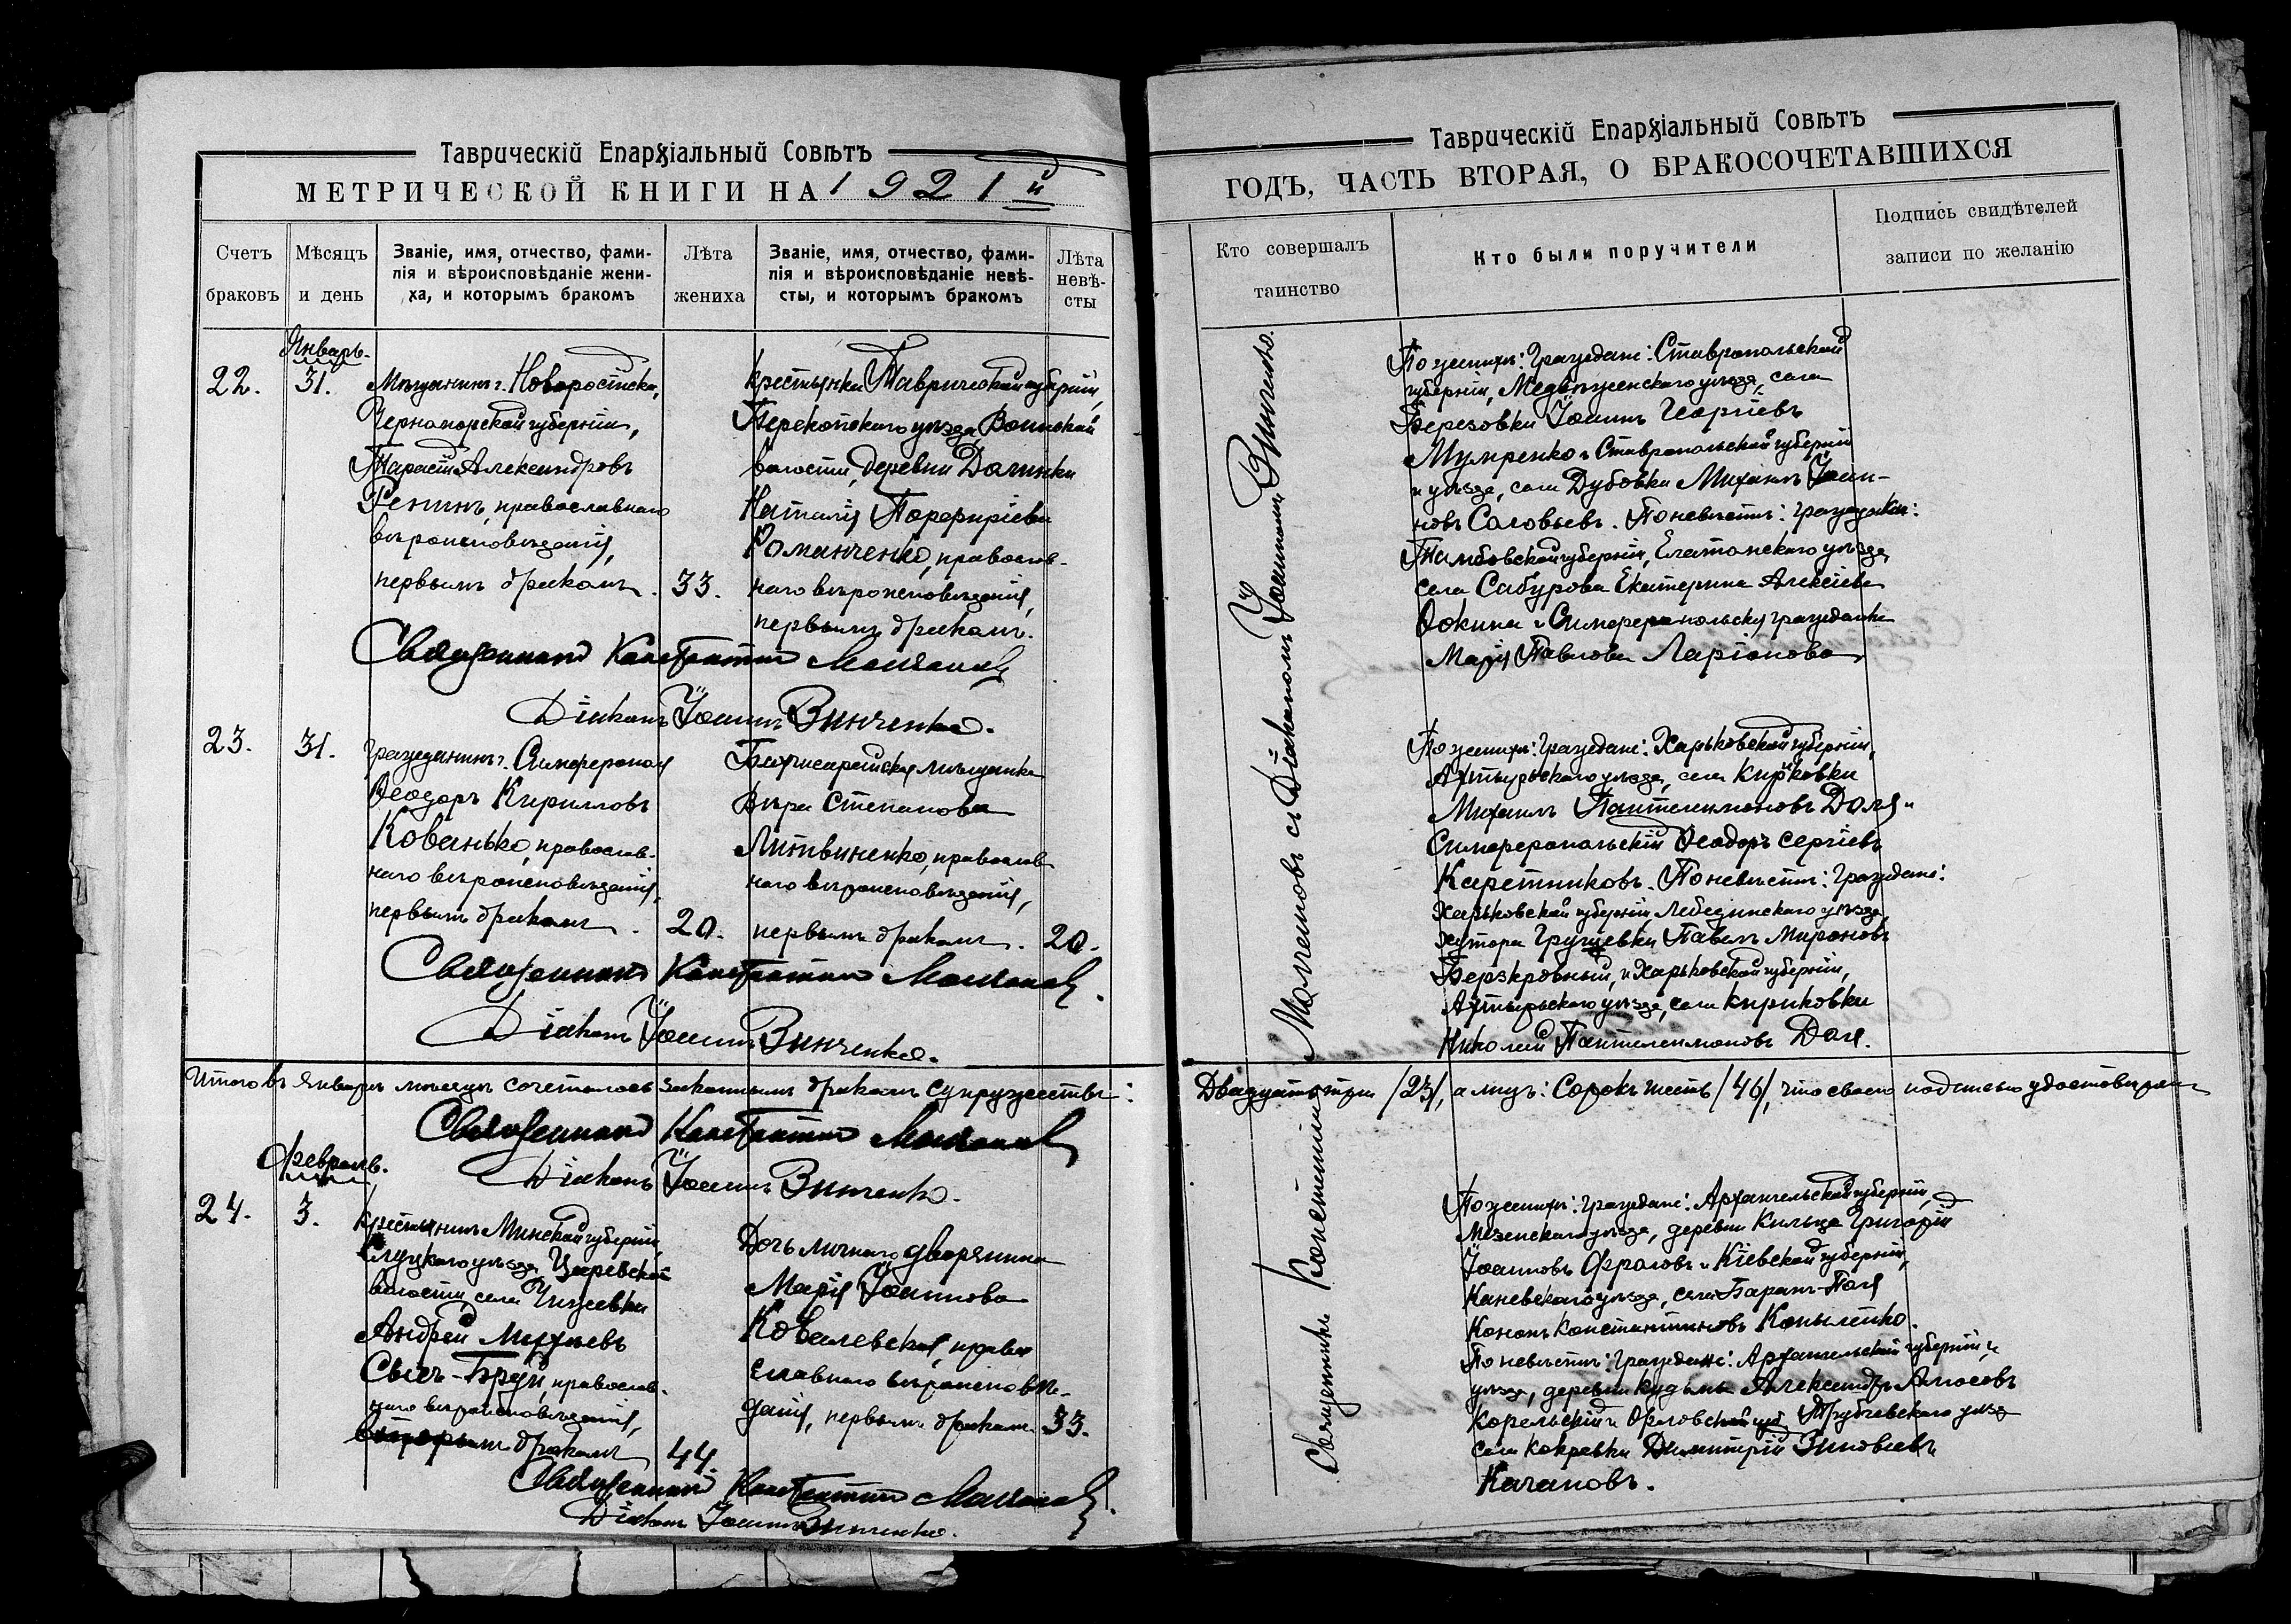 Таврическій Епархіальный Совѣтъ
МЕТРИЧЕСКОЙ КНИГИ НА 1921й
Счетъ браковъ
Мѣсяцъ и день
Званіе, имя, отчество, фами-
лія и вѣроисповѣданіе жени-
ха, и которымъ бракомъ
Лѣта жениха
Званіе, имя, отчество, фами-
лія и вѣроисповѣданіе невѣ-
сты, и которымъ бракомъ
Лѣта невѣ-
сты
Январь.
22.
31.
Мѣщанинъ г. Новоросійска,
Черноморской губерніи,
Александровъ
православнаго
вѣроисповѣданія,
первымъ бракомъ.
33.
крестьянка Таврической губерніи,
Перекопскаго уѣзда, Воинской
волости, деревни Долинки
Наталія Порфиріева
Романченко, православ-
наго вѣроисповѣданія,
первымъ бракомъ.
Священникъ Константинъ
Діаконъ Іоаннъ Винченко.
23.
31.
Гражданинъ г. Симферополя
Ѳеодоръ Кирилловъ
Кованько, православ-
наго вѣроисповѣданія,
первымъ бракомъ.
20.
Бахчисарайская мѣщанка
Вѣра Степанова
Литвиненко, православ-
наго вѣроисповѣданія,
первымъ бракомъ.
20.
Священникъ Константинъ
Діаконъ Іоаннъ Винченко.
Итого въ Январѣ мѣсяцѣ сочеталось законнымъ бракомъ супружествъ:
Священникъ Константинъ
Діаконъ Іоаннъ Винченко.
Февраль.
24.
3.
Крестьянинъ Минской губерніи,
Слуцкаго уѣзда, Царевской
волости, села
Андрей
Сычъ- православ-
наго вѣроисповѣданія,
вторымъ бракомъ
44.
Дочь личнаго дворянина
Марія Іоаннова
Ковалевская, право-
славнаго вѣроисповѣ-
данія, первымъ бракомъ
33.
Священникъ Константинъ
Діаконъ Іоаннъ Винченко.
Таврическій Епархіальный Совѣтъ
ГОДЪ, ЧАСТЬ ВТОРАЯ, О БРАКОСОЧЕТАВШИХСЯ
Кто совершалъ таинство
Кто были поручители
Подпись свидѣтелей
записи по желанію
Священникъ Константинъ съ Діакономъ Іоанномъ Винченко.
По женихѣ: Граждане: Ставропольской
губерніи, Медвѣженскаго уѣзда, села
Березовки Іоаннъ Георгіевъ
и Ставропольской губерніи
и уѣзда, села Дубовки Михаилъ Іоан-
новъ Соловьевъ. По невѣстѣ: гражданки:
Тамбовской губерніи, Елатомскаго уѣзда,
села Сабурова Екатерина Алексіева
Ѳокина и Симферопольская гражданка
Марія Павлова Ларіонова
По женихѣ: Граждане: Харьковской губерніи,
Ахтырскаго уѣзда, села Кириковки
Михаилъ Пантелеимоновъ Доля и
Симферопольскій Ѳеодоръ Сергіевъ
Каретниковъ. По невѣстѣ: Граждане:
Харьковской губерніи, Лебединскаго уѣзда,
хутора Павелъ Мироновъ
и Харьковской губерніи,
Ахтырскаго уѣзда, села Кириковки
Николай Пантелеимоновъ Доля.
Двадцать три /23/, а лицъ: Сорокъ шесть /46/, что своею подписью удостовѣряемъ
По женихѣ: Граждане: Архангельской губерніи,
Мезенскаго уѣзда, деревни Кильца Григорій
Іоанновъ Фроловъ и Кіевской губерніи,
Каневскаго уѣзда, села Баранъ-Поля
Кононъ Константиновъ Копыленко.
По невѣстѣ: Граждане: Архангельской губерніи и
уѣзда, деревни Кудьмы Александръ Амосовъ
Корельскій и Орловской губ. Трубчевскаго уѣзда
села Кокревки Димитрій Зиновіевъ
Качановъ.